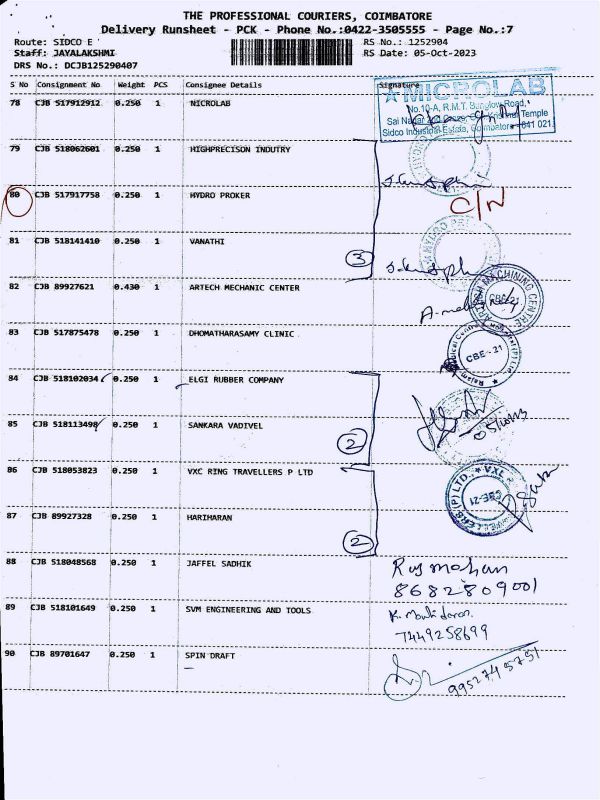 THE PROFESSIONAL COURIERS, COIMBATORE
Delivery Runsheet - PCK - Phone No.:0422-3505555 - Page No.:7
Route: SIDCO E RS No.: 1252904
Staff: JAYALAKSHMI RS Date: 05-Oct-2023
DRS No.: DCJB125290407
S No Consignment No Weight PCS Consignee Details Signature
78 CJB 517912912 0.250 1 NICROLAB
MICROLAB
No.10-A, R.M.T. Bunglow Road,
Sai Nagar Temple
Sidco Industrial Estate, Coimbatore - 641 021
79 CJB 518062601 0.250 1 HIGHPRECISON INDUTRY
80 CJB 517917758 0.250 1 HYDRO PROKER C/N
81 CJB 518141410 0.250 1 VANATHI
3
82 CJB 89927621 0.430 1 ARTECH MECHANIC CENTER
MACHINING CENTRE
CBE-21
83 CJB 517875478 0.250 1 DHOMATHARASAMY CLINIC
CBE-21
84 CJB 518102034 0.250 1 ELGI RUBBER COMPANY
85 CJB 518113498 0.250 1 SANKARA VADIVEL
2
86 CJB 518053823 0.250 1 VXC RING TRAVELLERS P LTD
CBE-21
87 CJB 89927328 0.250 1 HARIHARAN
2
88 CJB 518048568 0.250 1 JAFFEL SADHIK
Raj mohan
8682809001
89 CJB 518101649 0.250 1 SVM ENGINEERING AND TOOLS
7449258699
90 CJB 89701647 0.250 1 SPIN DRAFT
9952745751